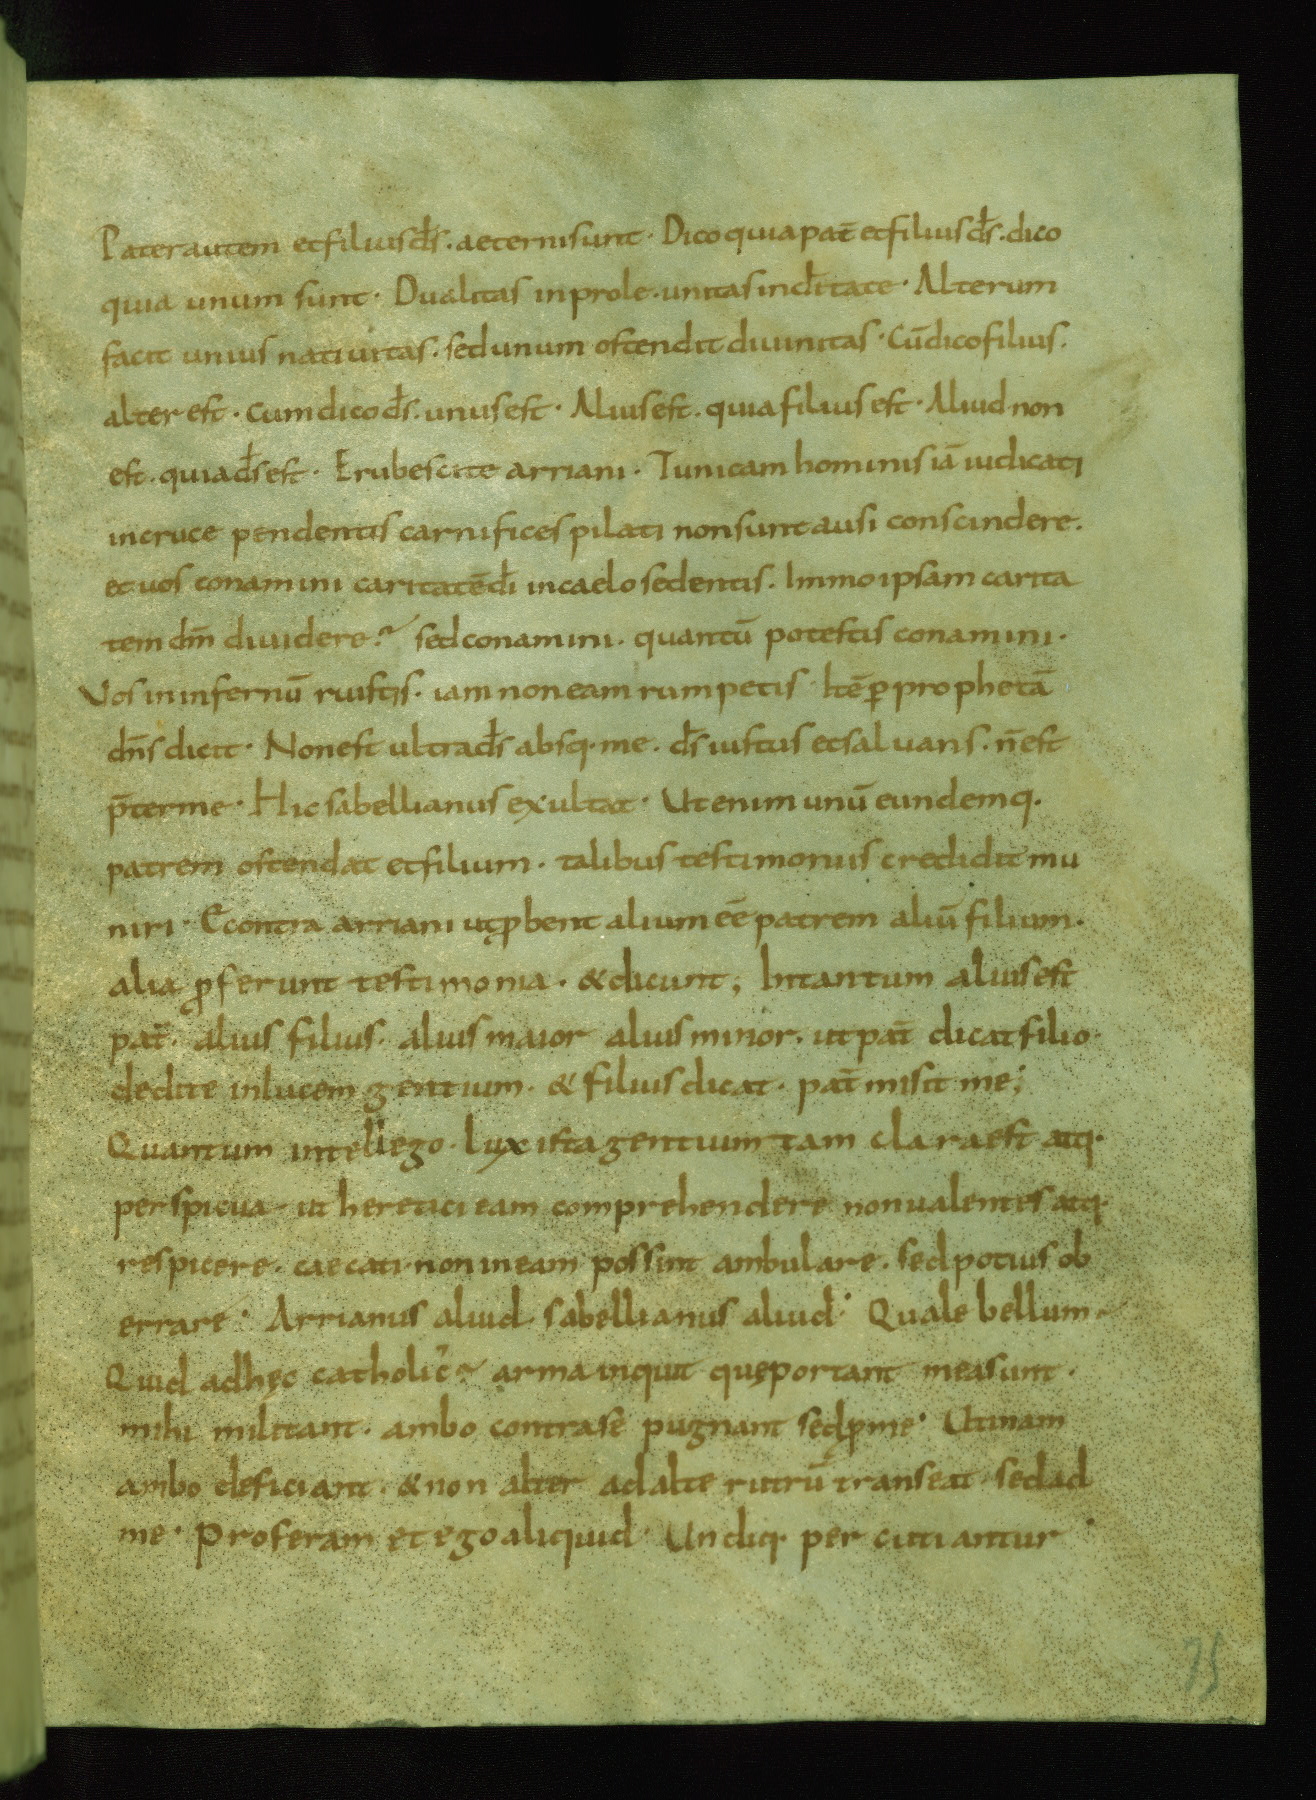 Pater autem et filius d̄s. aeterni sunt. Dico quia pat̄ et filius d̄s. dico
quia unum sunt. Dualitas in prole. unitas in d̄itate. Alterum
facit unius natiuitas. sed unum ostendit diuinitas. Cū dico filius.
alter est. Cum dico d̄s. unus est. Alius est. quia filius est. Aliud non
est. quia d̄s est. Erubescite arriani. Tunicam hominis iā iudicati
in cruce pendentis carnifices pilati non sunt ausi conscindere.
et uos conamini caritatē d̄i in caelo sedentis. Immo ipsam carita
tem dn̄i diuidere? sed conamini. quantū potestis conamini.
Vos in infernū ruistis. iam non eam rumpetis. Itē ꝑ prophetā
dn̄s dicit. Non est ultra d̄s absq. me. d̄s iustus et saluans. n̄ est
p̄ter me. Hic sabellianus exultat. Ut enim unū eundemq.
patrem ostendat et filium. talibus testimoniis credidit mu
niri. Econtra arriani ut ꝓbent alium eē patrem aliū filium.
alia ꝓferunt testimonia. & dicunt; In tantum alius est
pat̄. alius filius. alius maior alius minor. ut pat̄ dicat filio.
dedi te in lucem gentium. & filius dicat. pat̄ misit me;
Quantum intellego. lux ista gentium tam clara est atq.
perspicua. ut heretici eam comprehendere non ualentes atq.
respicere. caecati non in eam possint ambulare. sed potius ob
errare. Arrianus aliud. sabellianus aliud. Quale bellum.
Quid adhęc catholic̄? arma inquit quę portant mea sunt.
mihi militant. ambo contra se pugnant sed ꝓ me. Utinam
ambo deficiant. & non alter ad alterutrū transeat. sed ad
me. Proferam et ego aliquid. Undiq. percutiantur.
75